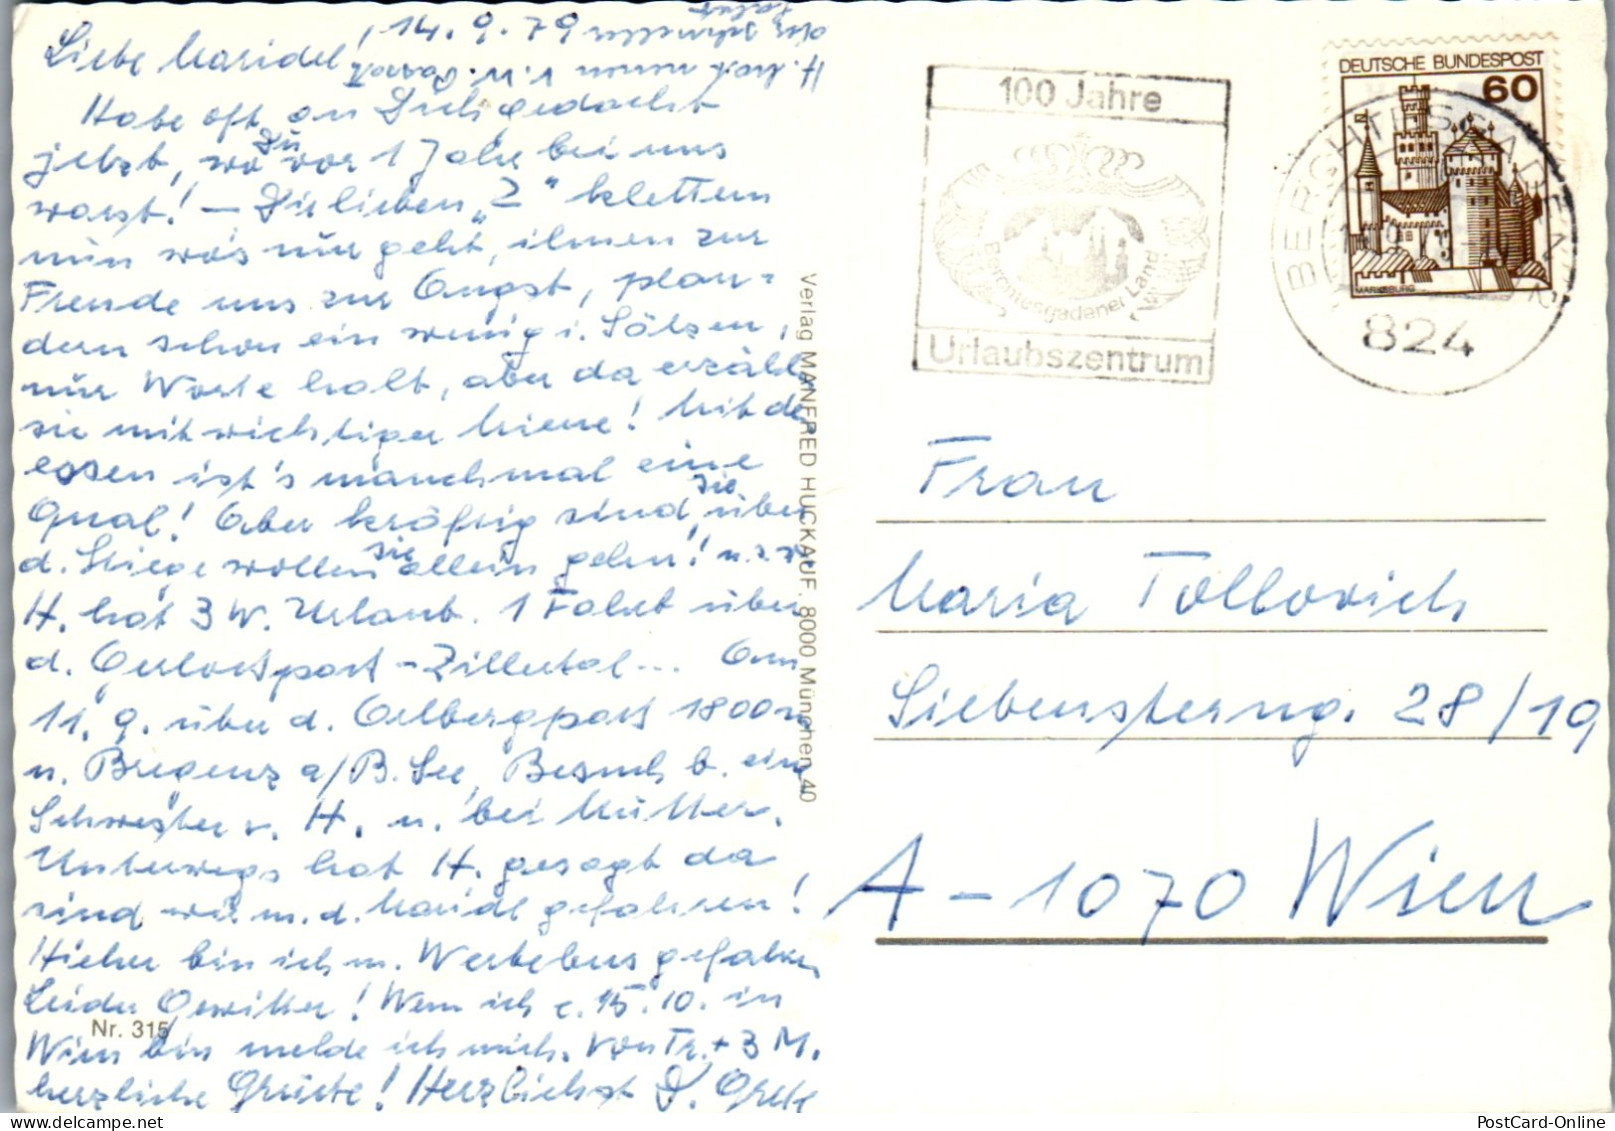 Liebe Maridel! 14.9.79
Habe oft an Dich gedacht
jetzt, wo Du vor 1 Jahr bei uns
warst! — Die lieben „2" klettern
nun was nur geht, ihnen zur
Freude uns zur Angst, plau=
dern schon ein wenig i. Sätzen,
nur Worte halt, aber da erzähl
sie mit wichtiger Miene! Mit de
essen ist's manchmal eine
Qual! Aber kräftig sind sie, über
d. Stiege wollen sie allein gehen! u.s.w.
H. hat 3 W. Urlaub. 1 Fahrt über
d. Gerlospass - Zillertal ... Am
11.9. über d. Arlbergpass 1800 m
n. Bregenz a/B. See, Besuch b. ein
Schwester v. H. u. bei Mutter.
Unterwegs hat H. gesagt da
sind wir m. d. Maridl gefahren!
Hieher bin ich m. Werbebus gefahren
Leider Gewitter! Wenn ich c. 15.10. in
Wien bin melde ich mich. Von Tr. + 3 M.
herzliche Grüße! Herzlichst D. Grete
Nr. 315
Verlag MANFRED HUCKAUF, 8000 München 40
100 Jahre
Berchtesgadener Land
Urlaubszentrum
DEUTSCHE BUNDESPOST
60
MARKSBURG
BERCHTESGADEN
824
Frau
Maria Tollovich
Siebensterng. 28/19
A-1070 Wien
PostCard-Online